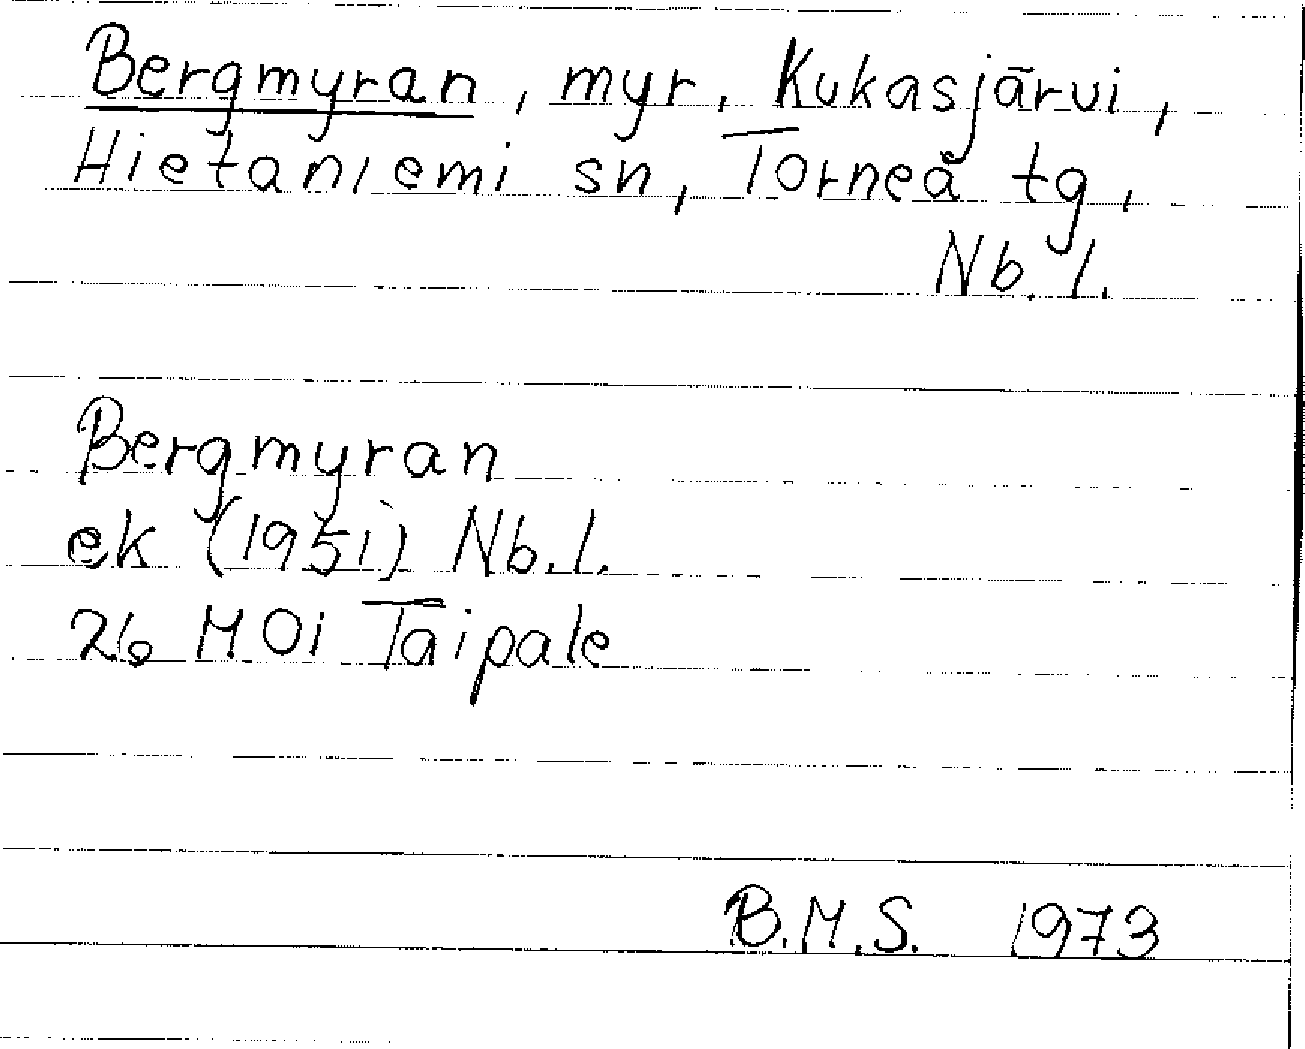 Bergmyran, myr, Kukasjärvi,
Hietaniemi sn, Torneå tg,
Nb. l.
Bergmyran
ek (1951) Nb.l.
26 M 0i Taipale
B.M.S. 1973